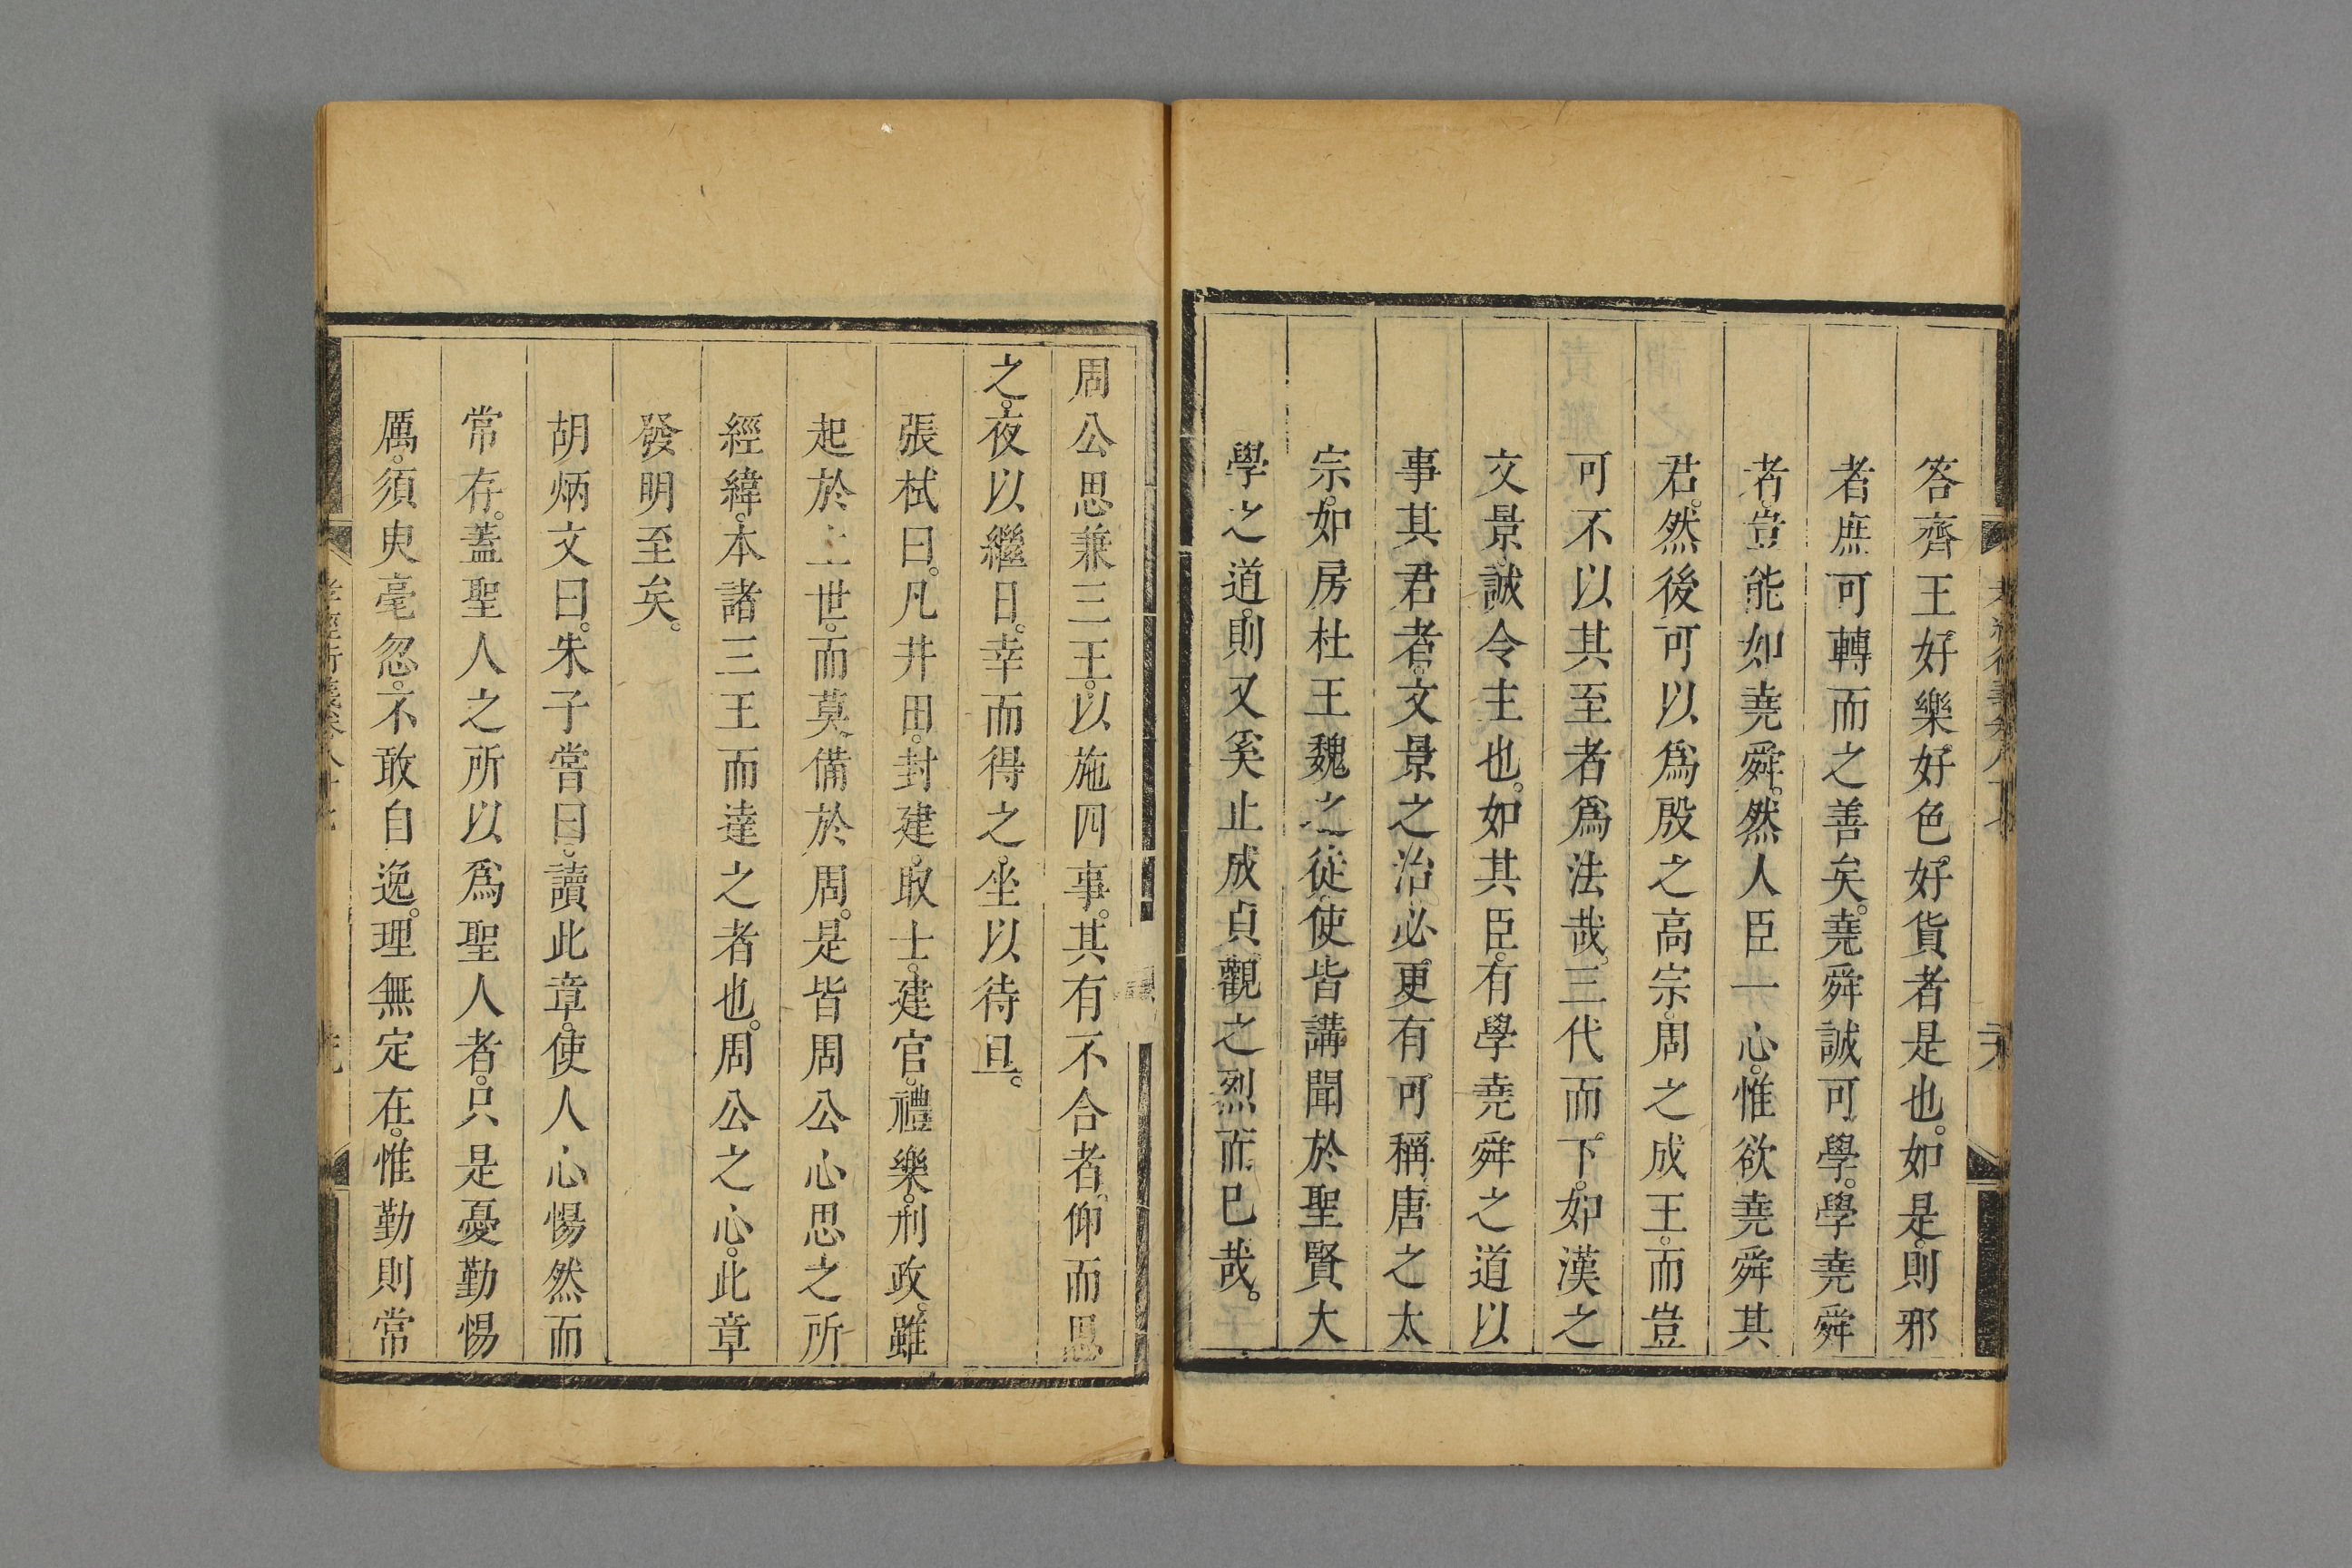 答齊王好樂好色好貨者是也。如是。則邪
者庶可轉而之善矣。堯舜誠可學。學堯舜
者。豈能如堯舜。然人臣一心。惟欲堯舜其
君。然後可以爲殷之高宗。周之成王。而豈
可不以其至者爲法哉。三代而下。如漢之
文景。誠令主也。如其臣。有學堯舜之道以
事其君者。文景之治。必更有可稱。唐之太
宗。如房杜王魏之從。使皆講聞於聖賢大
學之道。則又奚止成貞觀之烈而已哉。
周公思兼三王。以施四事。其有不合者。仰而思
之。夜以繼日。幸而得之。坐以待旦。
張栻曰。凡井田。封建。取士。建官。禮樂。刑政。雖
起於上世。而莫備於周。是皆周公心思之所
經緯。本諸三王而達之者也。周公之心。此章
發明至矣。
胡炳文曰。朱子嘗曰。讀此章。使人心惕然而
常存。蓋聖人之所以爲聖人者。只是憂勤惕
厲。須臾毫忽。不敢自逸。理無定在。惟勤則常
孝經衍義卷八十七